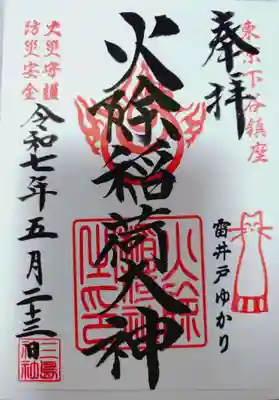 東京下谷鎮座
奉拝
雷井戸ゆかり
火除稲荷大神
火災守護
防災安全
令和七年五月二十三日
三島神社